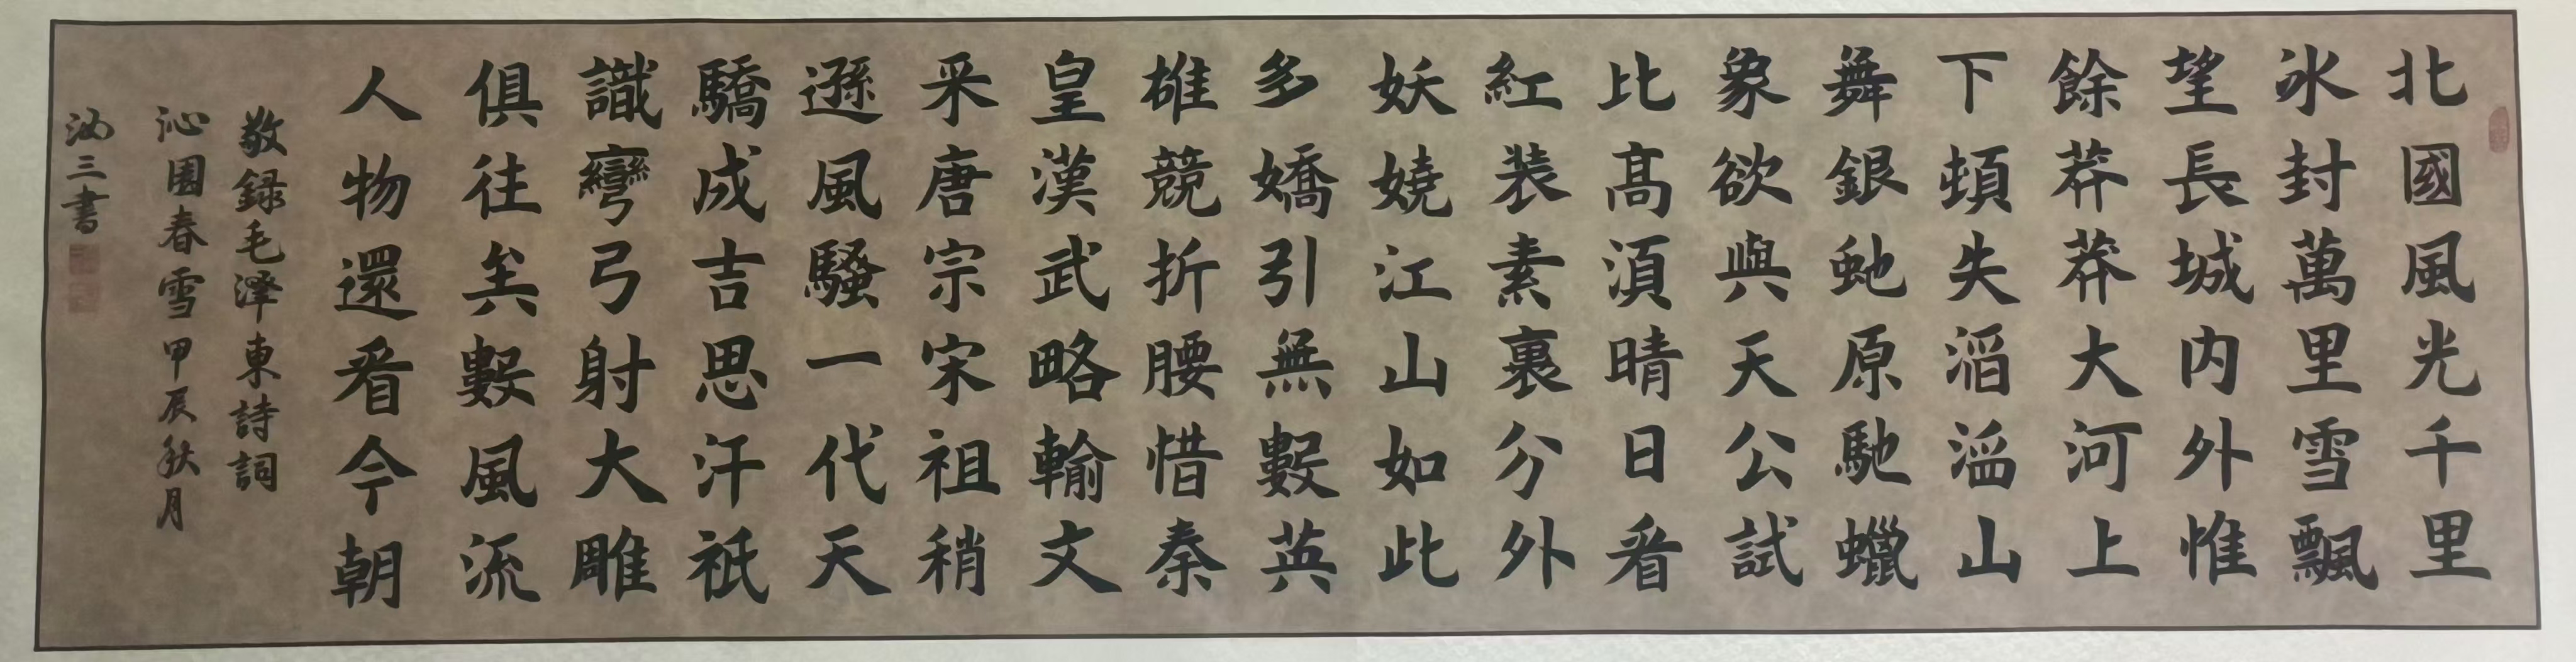 北國風光千里
冰封萬里雪飄
望長城内外惟
餘莽莽大河上
下頓失滔滔山
舞銀虵原馳蠟
象欲與天公試
比高須晴日看
紅裝素裹分外
妖嬈江山如此
多嬌引無數英
雄競折腰惜秦
皇漢武略輸文
采唐宗宋祖稍
遜風騷一代天
驕成吉思汗祇
識彎弓射大雕
俱往矣數風流
人物還看今朝
敬録毛澤東詩詞
沁園春雪甲辰秋月
三書